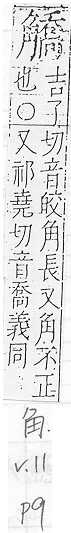 吉了切音皎角長又角不正
也○又祁堯切音喬義同
角.
v.11
p9